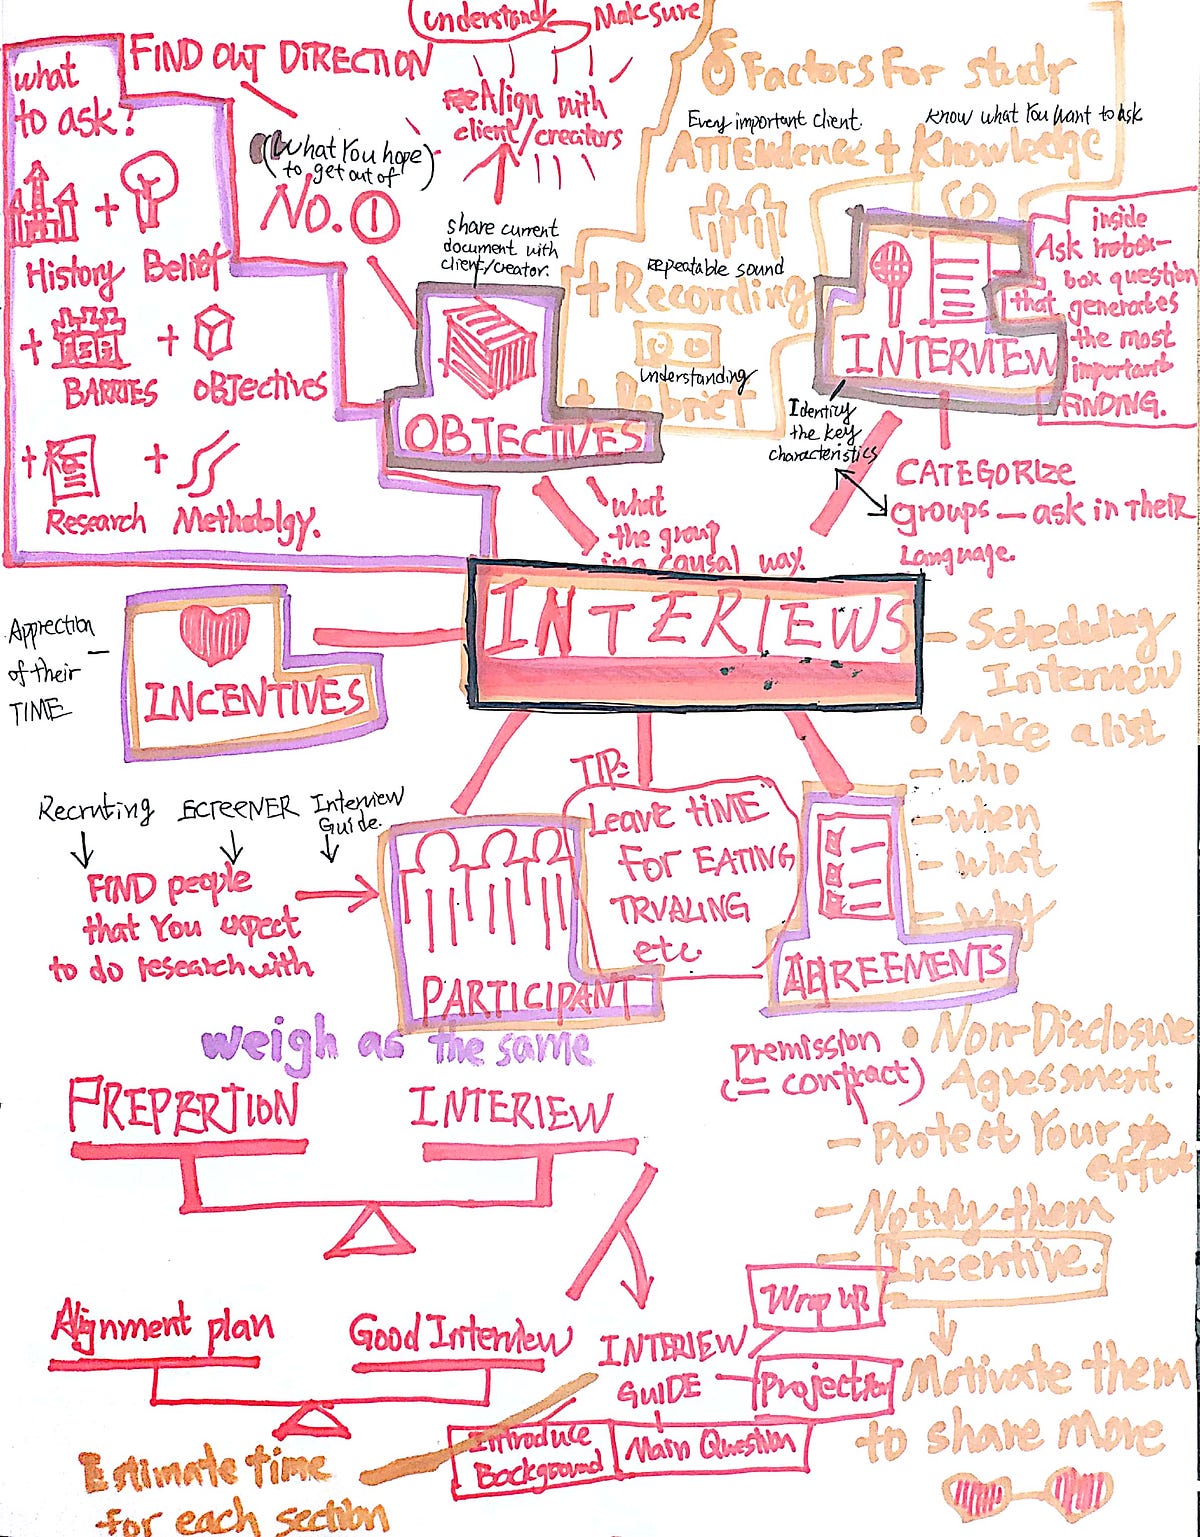 understand
Make sure
FIND OUT DIRECTION
what
to ask?
Align with
client/creators
(What You hope)
to get out of
No. 1
share current
document with
client/creator.
History
Belief
+
BARRIES
+
OBJectives
+
Research
+
Methodolgy.
OBJECTIVES
6 Factors For study
Every important client.
know what You want to ask
ATTEndence + Knowledge
repeatable sound
+ Recording
understanding
+ Debrief
INTERVIEW
inside
Ask inobox-
box question
that generates
the most
important
FINDING.
Identiry
the key
characteristics
CATEGORIZE
groups — ask in their
Language.
what
the group
in a causal way.
INTERIEWS
Apprection
of their
TIME
INCENTIVES
- Scheduling
Interview
• Make a list
- who
- when
- what
- why
TIP:
Leave tiME
FOR EATING,
TRVALING
etc.
Recruting
SCREENER
Interview
Guide.
FIND people
that You expect
to do research with
PARTICIPANT
AGREEMENTS
premission
(= contract)
• Non-Disclosure
Agressment.
- Protect Your
effort
- Notify them
- Incentive.
Motivate them
to share more
weigh as the same
PREPERTION
INTERIEW
Alignment plan
Good Interview
INTERIEW
GUIDE
Wrap up
Projection
Introduce
Background
Main Question
Estimate time
for each section